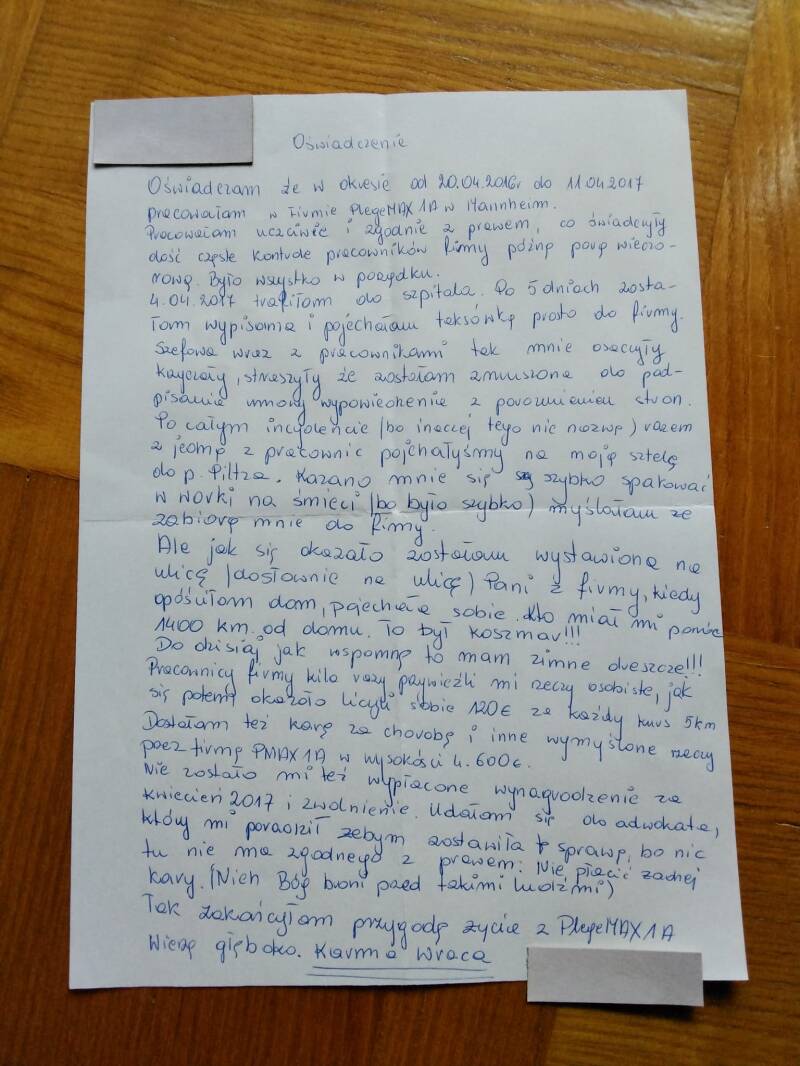 Oświadczenie
Oświadczam że w okresie od 20.04.2016r do 11.04.2017
pracowałam w firmie PlegeMAX1A w Mannheim.
Pracowałam uczciwie i zgodnie z prawem, co świadczyły
dość częste kontrole pracowników firmy późną porą wieczo-
rową. Było wszystko w porządku.
4.04.2017 trafiłam do szpitala. Po 5 dniach zosta-
łam wypisana i pojechałam taksówką prosto do firmy.
Szefowa wraz z pracownikami tak mnie osaczyły
krzyczały, straszyły że zostałam zmuszona do pod-
pisania umowy wypowiedzenie z porozumieniem stron.
Po całym incydencie (bo inaczej tego nie nazwę) razem
z jedną z pracownic pojechałyśmy na moją sztelę
do p. Piltza. Kazano mnie się szybko spakować
w worki na śmieci (bo było szybko) myślałam że
zabiorą mnie do firmy.
Ale jak się okazało zostałam wystawiona na
ulicę (dosłownie na ulicę) Pani z firmy, kiedy
opóściłam dom, pojechała sobie. Kto miał mi pomóc
1400 km. od domu. To był koszmar!!!
Do dzisiaj jak wspomnę to mam zimne dreszcze!!!
Pracownicy firmy kila razy przywieźli mi rzeczy osobiste, jak
się potem okazało liczyli sobie 120€ za każdy kurs 5km
Dostałam też karę za chorobę i inne wymyślone rzeczy
przez firmę PMAX1A w wysokości 4.600€.
Nie zostało mi też wypłacone wynagrodzenie za
kwiecień 2017 i zwolnienie. Udałam się do adwokata,
który mi poradził żebym zostawiła sprawę, bo nic
tu nie ma zgodnego z prawem. Nie płacić żadnej
kary. (Niech Bóg broni przed takimi ludźmi)
Tak zakończyłam przygodę życia z PlegeMAX1A
Wierzę głęboko. Karma wraca